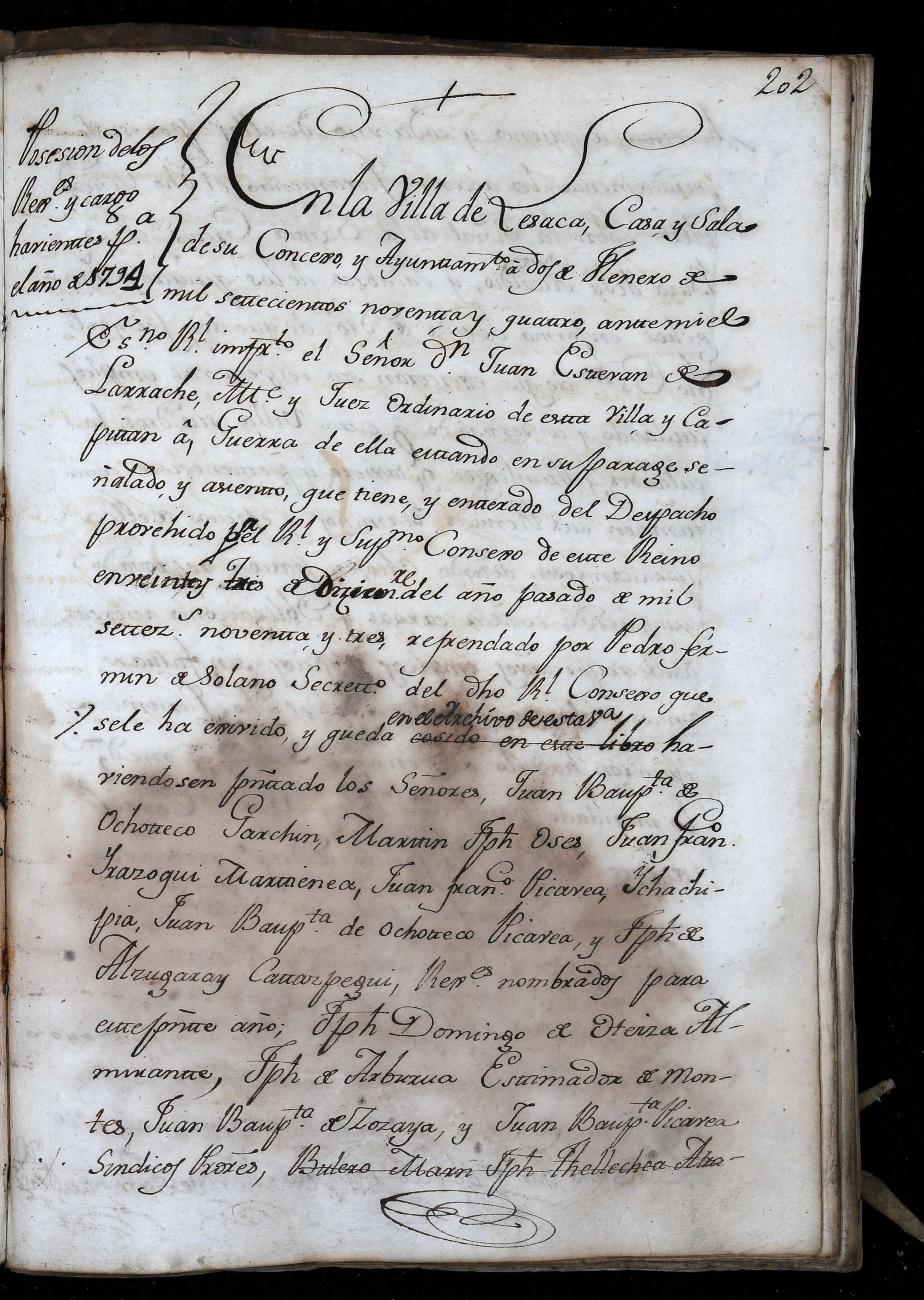 202
Posesion delos
Rexes. y cargo
havientes pa.
el año de 1794
En la Villa de Lesaca, Casa, y Sala
de su Concexo, y Ayuntiamto. â dos de Henero de
mil settecientos noventta y quattro, antte mi el
Esno Rl. imfrto el Señor Dn Juan Estevan de
Larrache, Altte y Juez Ordinario de estta Villa y Ca-
pittan â, Guerra de ella esttando en su parage se-
ñalado, y asientto, que tiene, y entterado del Despacho
provehido pr el Rl. y Supmo Consexo de estte Reino
en veintey tres de Diciemre. del año pasado de mil
settezs. noventta y tres, refrendado por Pedro fer-
min de Solano Secretto. del dho Rl Consexo que
en el Archivo de esta va
se le ha exivido, y queda cosido en este libro ha-
viendosen pñttado los Señores, Juan Baupta. de
Ochotteco Garchin, Marttin Jph Oses, Juan franco.
Yrazoqui Marttienea, Juan franco. Picarea, Ychachi-
pia, Juan Baupta. de Ochotteco Picarea, y Jph de
Alzugaray Cattazpegui, Rexes. nombrados para
estte pñtte año; Jph Domingo de Oteiza Al-
mirantte, Jph de Arburua Esttimador de Mon-
tes, Juan Baupta. de Zozaya, y Juan Baupta. Picarea
Sindicos Prores, Bulero Marn Jph Thellechea Alza-